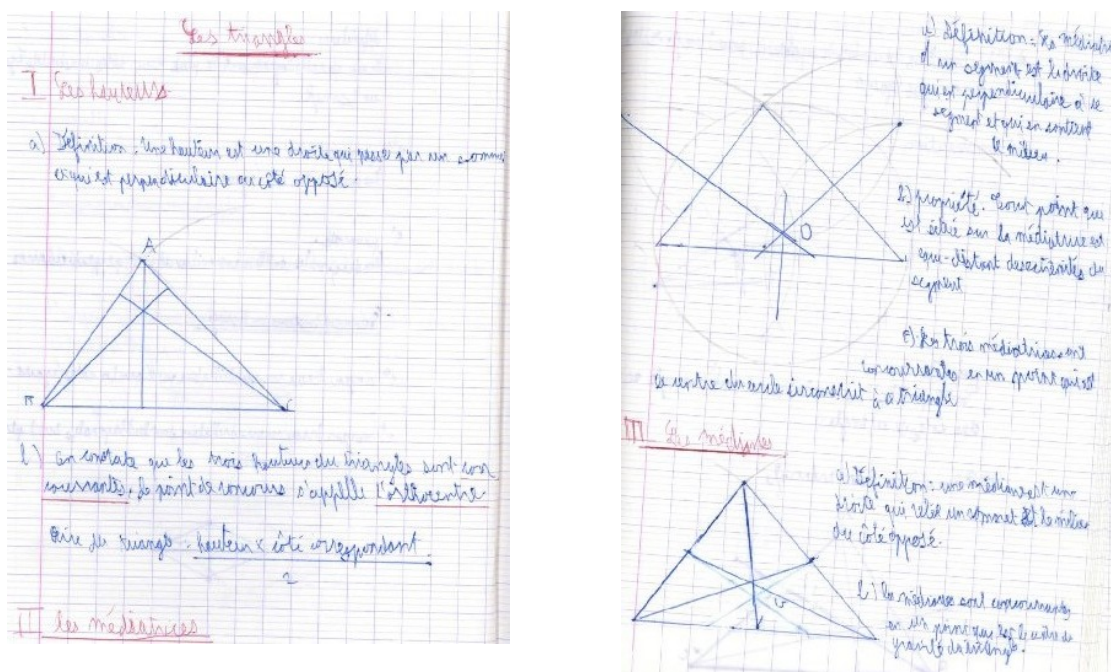 Les triangles
I Les hauteurs
a) Définition : Une hauteur est une droite qui passe par un somme
et qui est perpendiculaire au côté opposé.
A
B
C
b) on constate que les trois hauteurs du triangles sont con
courrantes. Le point de concours s'appelle l'orthocentre
Aire du triangle = hauteur x côté correspondant
2
II les médiatrices
a) Définition : La médiatri
d'un segment est la droite
qui est perpendiculaire à se
segment et qui en contient
le milieu.
O
b) propriété. Tout point qui
est située sur la médiatrice est
equi-distant des extrémités du
segment
c) Les trois médiatrices sont
concourrantes en un point qui est
le centre du cercle circonscrit à ce triangle
III Les médianes
a) Définition : une médiane est une
droite qui relie un sommet et le milieu
du côté opposé.
G
b) les médianes sont concourrantes
en un point qui est le centre de
gravité du triangle.